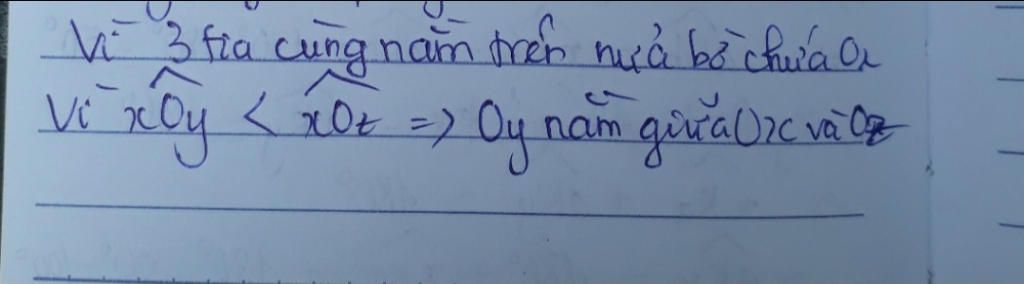 Vì 3 tia cùng nằm trên nửa bờ chứa Ox
Vì xOy < xOz => Oy nằm giữa Ox và Oz